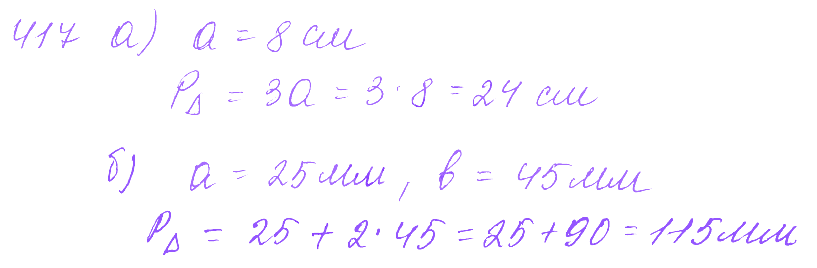 417 а) a = 8 см
P△ = 3a = 3 · 8 = 24 см
б) a = 25 мм, в = 45 мм
P△ = 25 + 2 · 45 = 25 + 90 = 115 мм